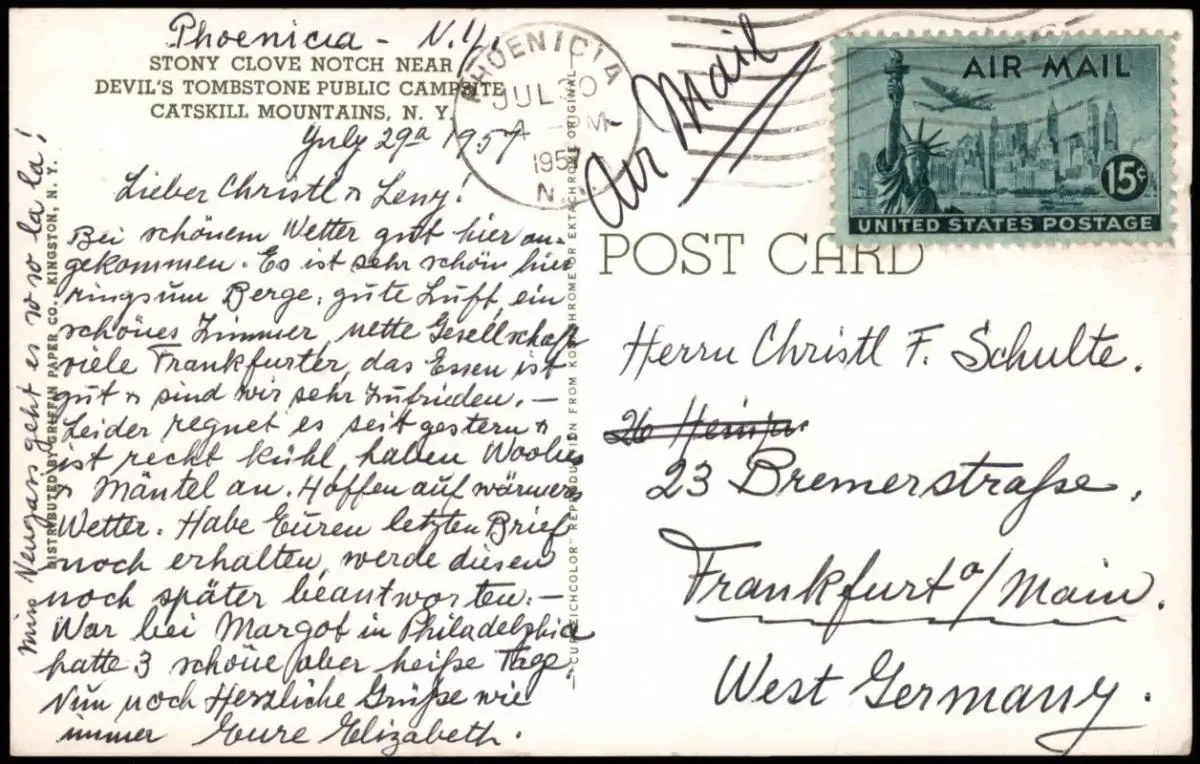 Phoenicia - N.Y.
STONY CLOVE NOTCH NEAR
DEVIL'S TOMBSTONE PUBLIC CAMPSITE
CATSKILL MOUNTAINS, N. Y.
July 29a 1957
Lieber Christl n Leny!
Bei schönem Wetter gut hier an-
gekommen. Es ist sehr schön hier
ringsum Berge, gute Luft, ein
schönes Zimmer, nette Gesellschaft
viele Frankfurter, das Essen ist
gut n sind wir sehr zufrieden. —
Leider regnet es seit gestern n
ist recht kühl, haben Woolies
n Mäntel an. Hoffen auf wärmeres
Wetter. Habe Euren letzten Brief
noch erhalten, werde diesen
noch später beantworten. —
War bei Margot in Philadelphia
hatte 3 schöne aber heiße Tage
Nun noch Herzliche Grüße wie
immer Eure Elizabeth.
Neugass geht es so so la la!
DISTRIBUTED BY GRIFFAN PAPER CO., KINGSTON, N. Y.
"CURTEICHCOLOR" REPRODUCTION FROM KODACHROME OR EKTACHROME ORIGINAL
PHOENICIA
JUL 30
M
1957
N.
Air Mail
AIR MAIL
15¢
UNITED STATES POSTAGE
POST CARD
Herrn Christl F. Schulte.
26
23 Bremerstraße,
Frankfurt a/Main.
West Germany.